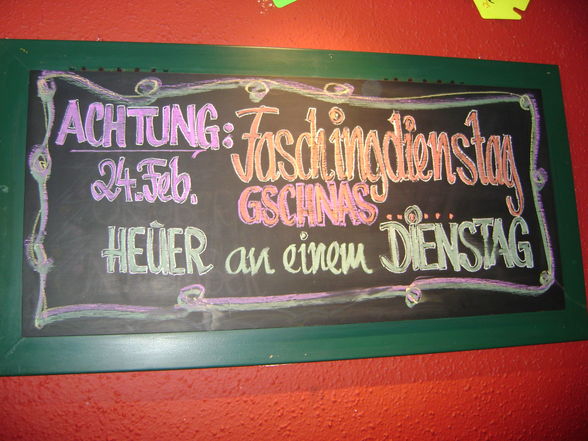 ACHTUNG: Faschingdienstag
24. Feb. GSCHNAS
HEUER an einem DIENSTAG